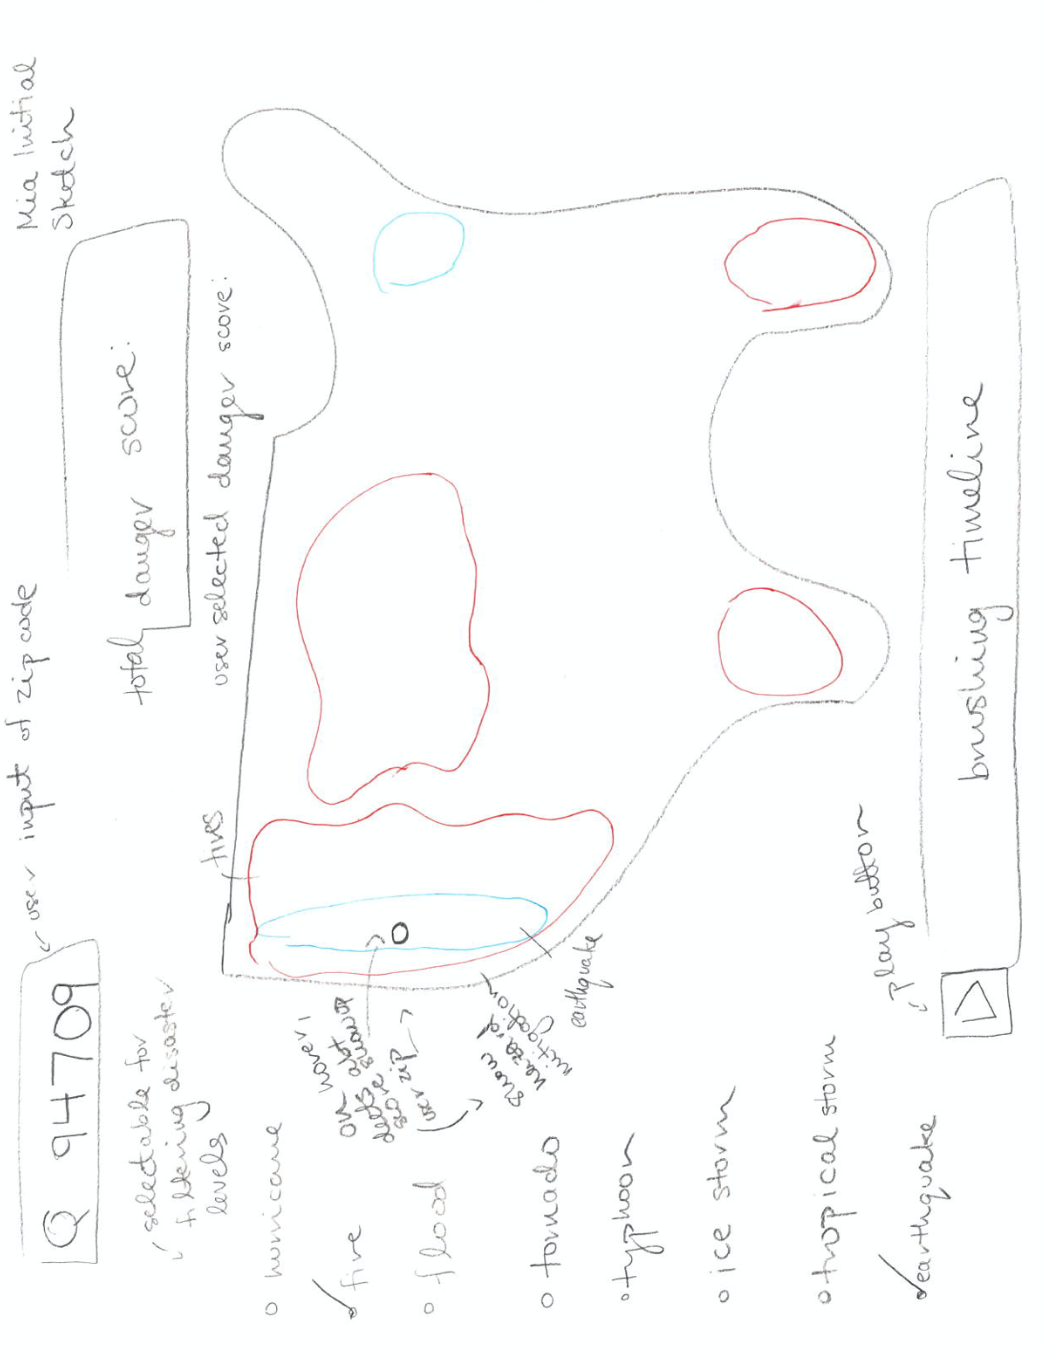 Mia Initial
Sketch
user input of zip code
94709
total danger score:
user selected danger score:
selectable for
filtering disaster
levels
hurricane
fire
flood
tornado
typhoon
ice storm
tropical storm
earthquake
fires
on hover,
user zip
show
hazard
mitigation
earthquake
play button
brushing timeline